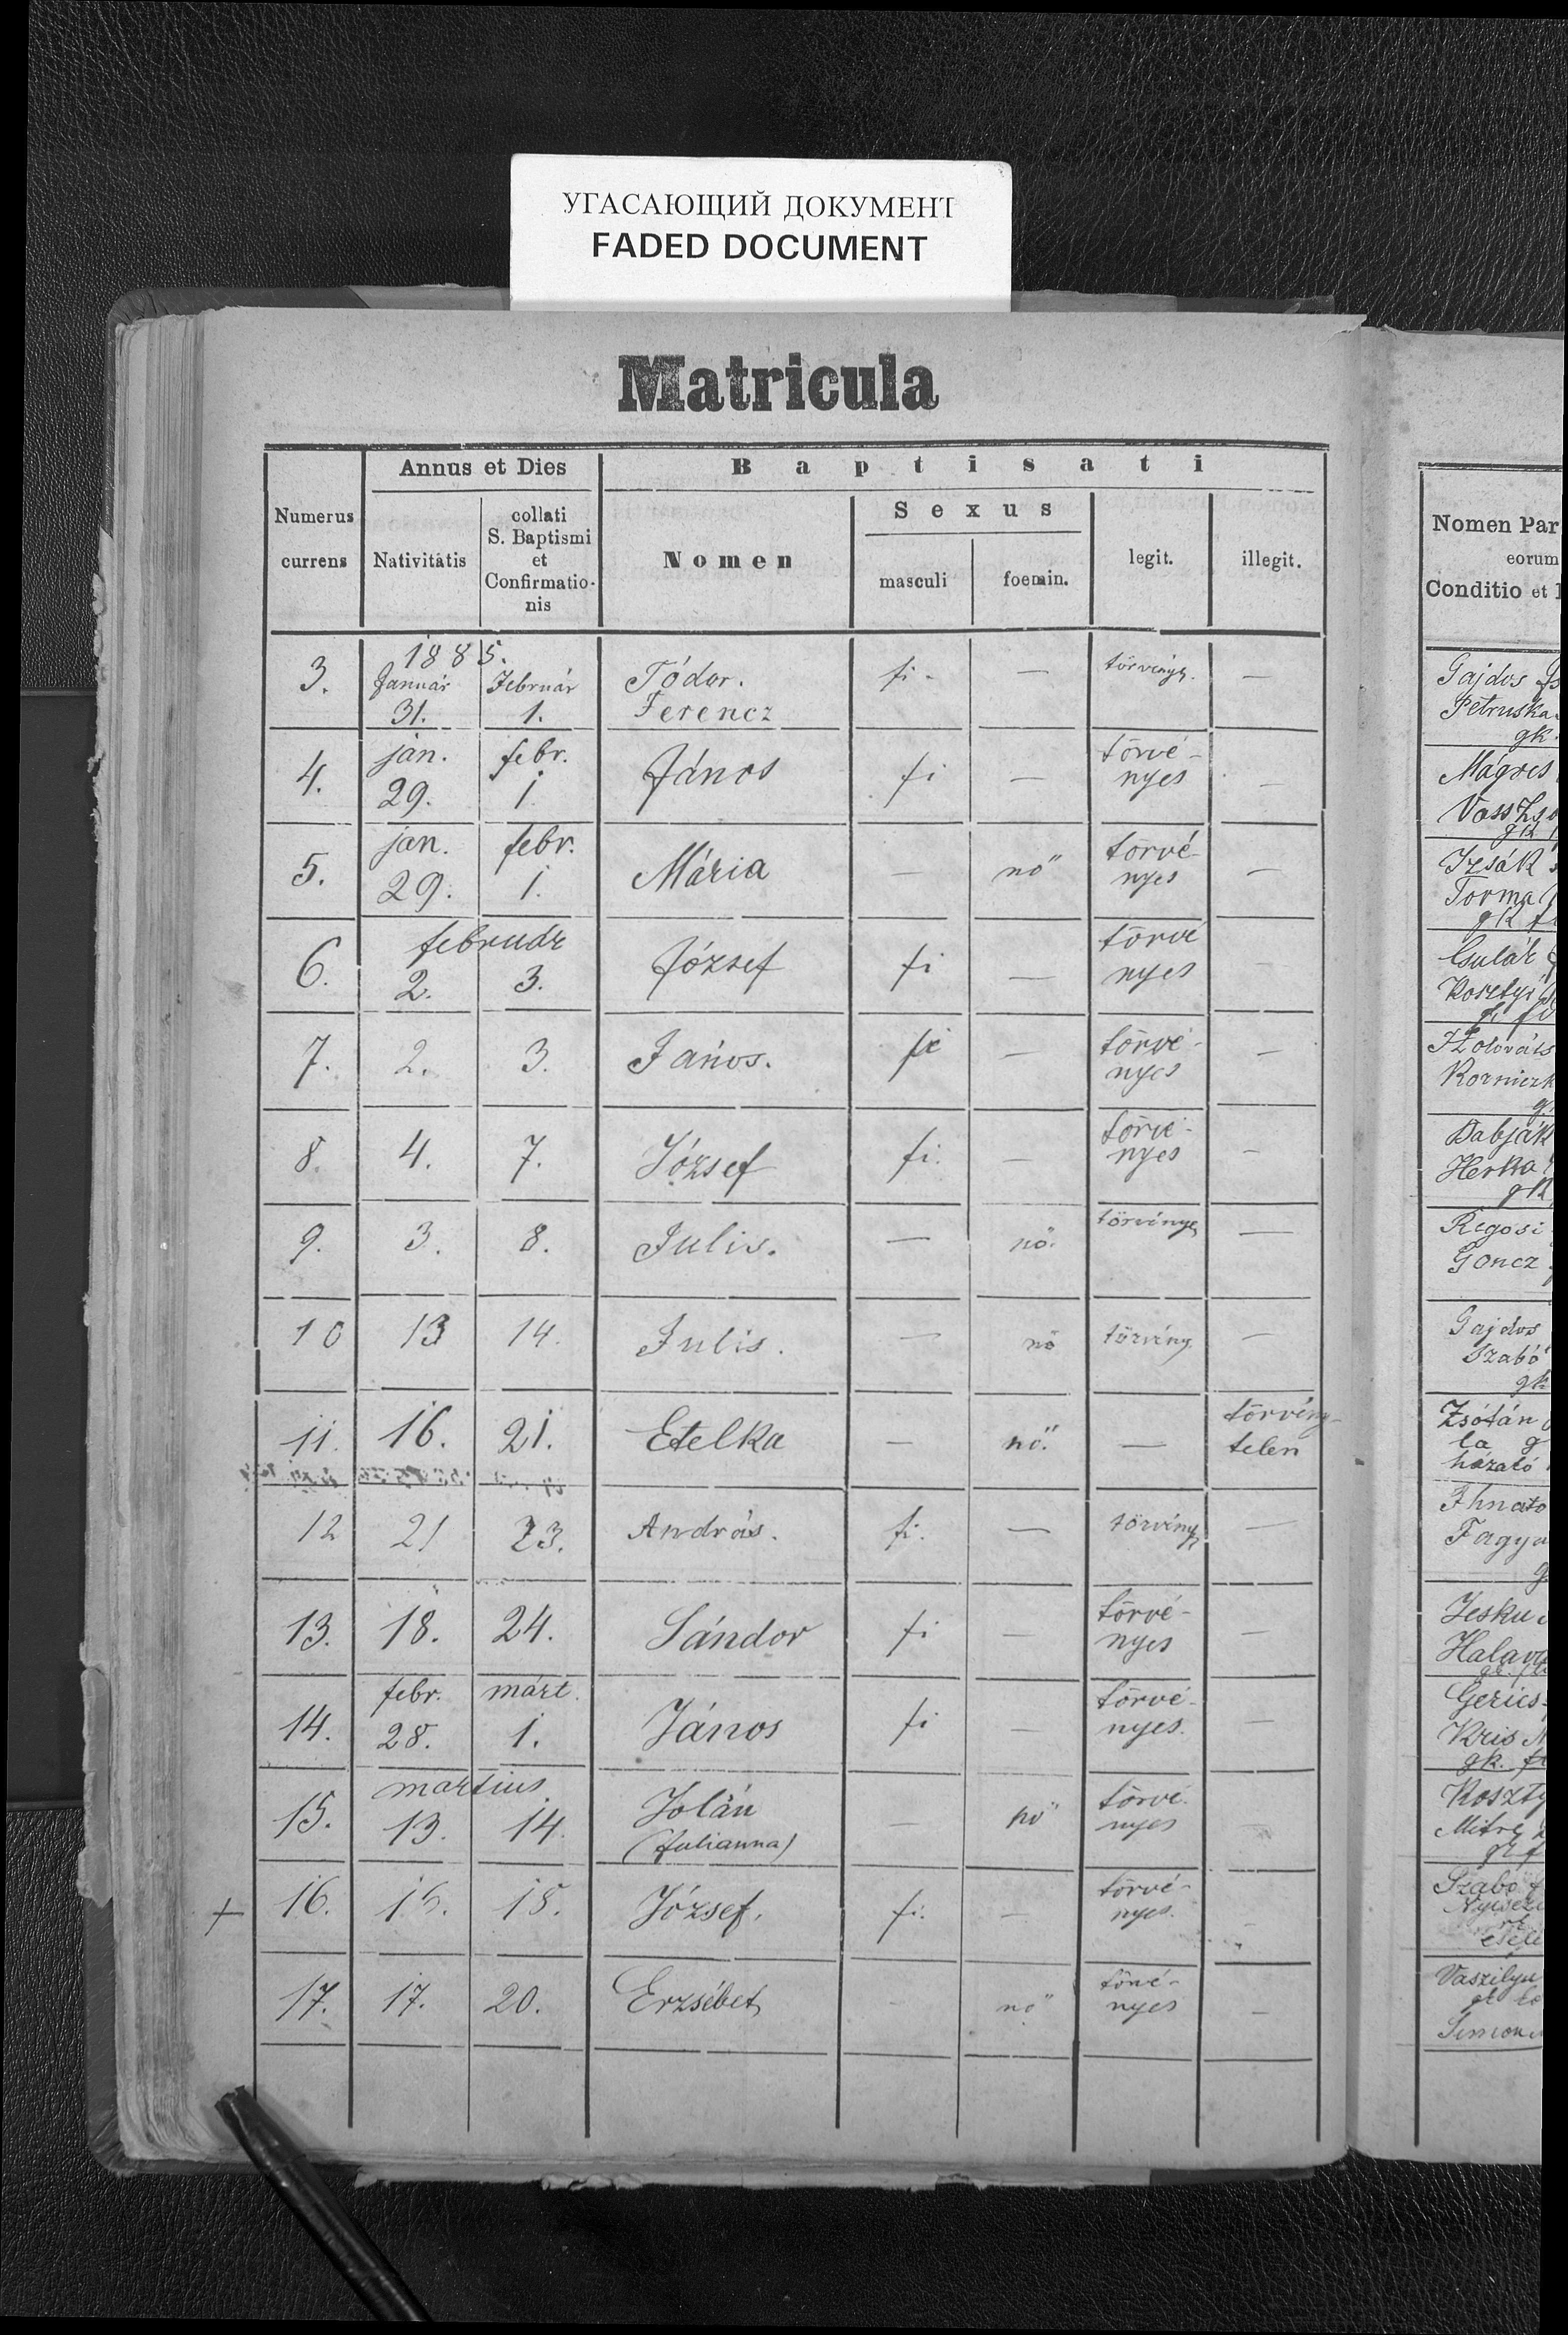 УГАСАЮЩИЙ ДОКУМЕНТ
FADED DOCUMENT
Matricula
Numerus currens
Annus et Dies
Nativitatis
collati S. Baptismi et Confirmatio-nis
Baptisati
Nomen
Sexus
masculi
foemin.
legit.
illegit.
1885.
3. Január 31. Február 1. Tódor. Ferencz fi. — törvénys. —
4. jan. 29. febr. 1. János fi — törvé-nyes —
5. jan. 29. febr. 1. Mária — nő törvé-nyes —
6. február 2. 3. József fi — törvé nyes —
7. 2. 3. János. fi — törvé-nyes —
8. 4. 7. József fi. — törvé-nyes —
9. 3. 8. Julis. — nő. törvényes —
10 13 14. Julis. — nő törvény. —
11. 16. 21. Etelka — nő. — törvény-telen
12 21 23. András. fi. — törvény —
13. 18. 24. Sándor fi — törvé-nyes —
14. febr. 28. márt. 1. János fi — törvé-nyes. —
15. martius 13. 14. Jolán (Julianna) — nő törvé-nyes —
+ 16. 15. 15. József. fi. — törvé-nyes. —
17. 17. 20. Erzsébet — nő törvé-nyes —
Nomen Par
eorum
Conditio et
Gajdos
Petruska
gk.
Mágres
Vass Zs
gk
Izsák
Torma
gk
Gulár
Kosztyi
Holováts
Korniczk
Babják
Herka
gk
Regosi
Goncz
Gajdos
Szabó
gk
Zsótán
la g
házaló
Ihnato
Fagya
g
Jesku
Halava
Gerics
Kris M
gk. f
Koszty
Mitro
gk f
Szabó
Vaszilyu
gk
Simon